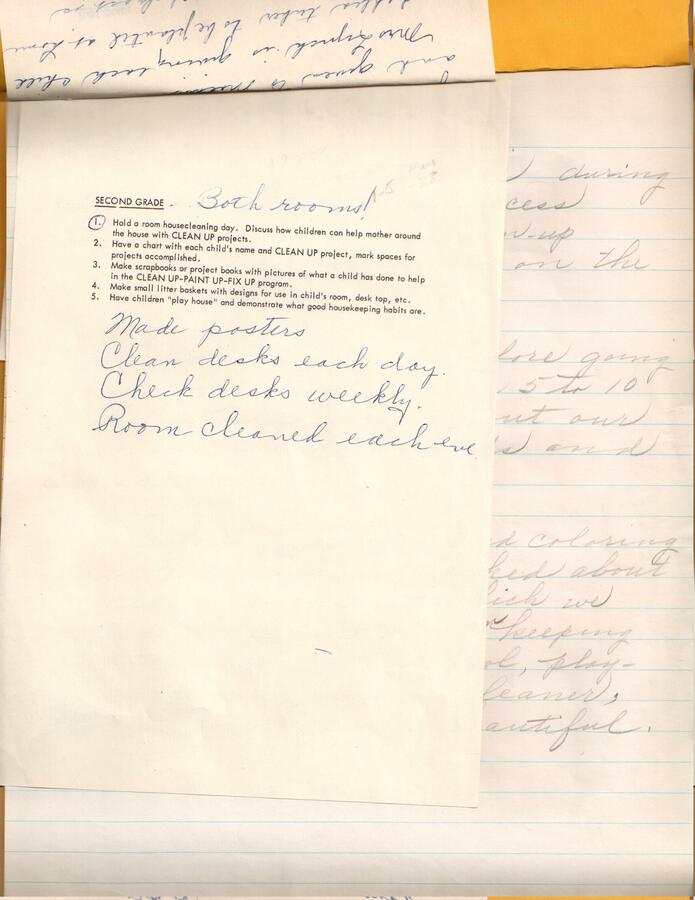 Mrs Lynch is giving each child
to be planted at home
SECOND GRADE - Both rooms!
1. Hold a room housecleaning day. Discuss how children can help mother around
the house with CLEAN UP projects.
2. Have a chart with each child's name and CLEAN UP project, mark spaces for
projects accomplished.
3. Make scrapbooks or project books with pictures of what a child has done to help
in the CLEAN UP-PAINT UP-FIX UP program.
4. Make small litter baskets with designs for use in child's room, desk top, etc.
5. Have children "play house" and demonstrate what good housekeeping habits are.
Made posters
Clean desks each day.
Check desks weekly.
Room cleaned each eve
during
cess
on the
fore going
5 to 10
out our
and
coloring
ked about
ich we
keeping
ol, play-
leaner,
autiful.